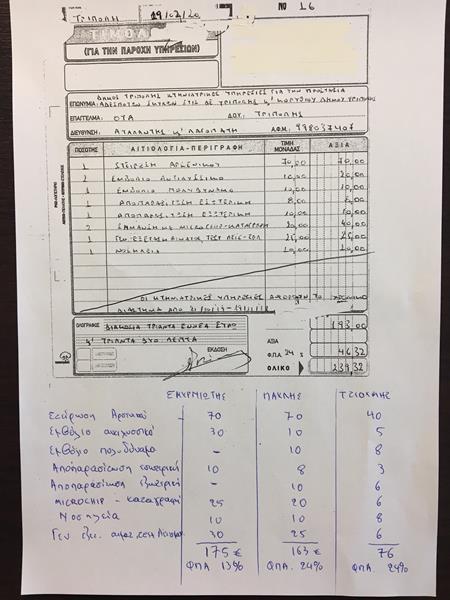 ΤΡΙΠΟΛΗ 19/02/20 Νο 16
ΤΙΜΟΛ
(ΓΙΑ ΤΗΝ ΠΑΡΟΧΗ ΥΠΗΡΕΣΙΩΝ)
ΔΗΜΟΣ ΤΡΙΠΟΛΗΣ ΚΤΗΝΙΑΤΡΙΚΕΣ ΥΠΗΡΕΣΙΕΣ ΓΙΑ ΤΗΝ ΠΡΟΣΤΑΣΙΑ
ΕΠΩΝΥΜΙΑ: ΑΔΕΣΠΟΤΩΝ ΖΩΩΝ ΣΤΙΣ ΔΕ ΤΡΙΠΟΛΗΣ ΚΟΡΥΘΙΟΥ ΔΗΜΟΥ ΤΡΙΠΟΛΗΣ
ΕΠΑΓΓΕΛΜΑ: ΟΤΑ ΔΟΥ: ΤΡΙΠΟΛΗΣ
ΔΙΕΥΘΥΝΣΗ: ΑΤΑΛΑΝΤΗΣ Α.Φ.Μ. 998037407
ΠΟΣΟΤΗΣ ΑΙΤΙΟΛΟΓΙΑ-ΠΕΡΙΓΡΑΦΗ ΤΙΜΗ ΜΟΝΑΔΟΣ ΑΞΙΑ
1 ΣΤΕΙΡΩΣΗ ΑΡΣΕΝΙΚΟΥ 70,00 70,00
ΕΜΒΟΛΙΟ ΑΝΤΙΛΥΣΣΙΚΟ 10,00
1 ΕΜΒΟΛΙΟ ΠΟΛΥΔΥΝΑΜΟ 10,00
1 ΑΠΟΠΑΡΑΣΙΤΩΣΗ ΕΣΩΤΕΡΙΚΗ 8,00 8,00
1 ΑΠΟΠΑΡΑΣΙΤΩΣΗ ΕΞΩΤΕΡΙΚΗ 10,00
2 ΣΗΜΑΝΣΗ ΜΕ MICROCHIP-ΚΑΤΑΓΡΑΦΗ 20,00 40,00
1 ΓΕΝ. ΕΞΕΤΑΣΗ ΑΙΜΑΤΟΣ, ΤΕΣΤ ΛΕΙΣ-ΣΟΛ 25,00 25,00
1 ΝΟΣΗΛΕΙΑ 10,00 10,00
ΟΙ ΚΤΗΝΙΑΤΡΙΚΕΣ ΥΠΗΡΕΣΙΕΣ ΑΦΟΡΟΥΝ ΤΟ ΧΡΟΝΙΚΟ
ΔΙΑΣΤΗΜΑ ΑΠΟ
ΟΛΟΓΡΑΦΩΣ ΔΙΑΚΟΣΙΑ ΤΡΙΑΝΤΑ ΕΝΝΕΑ ΕΥΡΩ 193,00
ΤΡΙΑΝΤΑ ΔΥΟ ΛΕΠΤΑ ΑΞΙΑ
ΕΚΔΟΣΗ Φ.Π.Α. 24 % 46,32
ΟΛΙΚΟ 239,32
ΣΜΥΡΝΙΩΤΗΣ ΠΑΥΛΗΣ ΤΣΙΩΚΛΗΣ
Στείρωση Αρσενικού - 70 70 40
Εμβόλιο αντιλυσσικό 30 10 5
Εμβόλιο πολυδύναμο - 10 8
Αποπαρασίτωση εσωτερική 10 8 3
Αποπαρασίτωση εξωτερική - 10 6
MICROCHIP - καταγραφή 25 20 6
Νοσηλεία 10 10 8
Γεν. εξ. αιματ. τεστ Λεισμ. 30 25 6
175 € 163 € 76
ΦΠΑ 13% ΦΠΑ. 24% ΦΠΑ. 24%